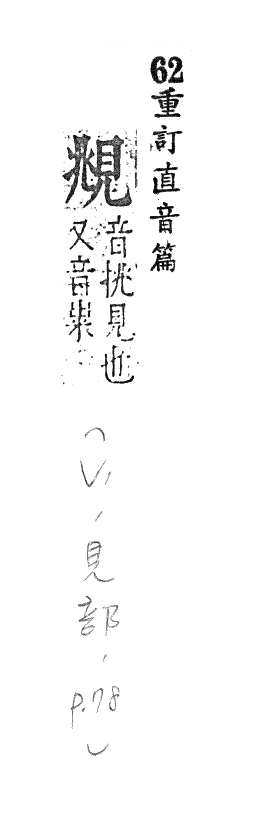 62重訂直音篇
覜
音挑見也
又音
(V1,見部,p.78)